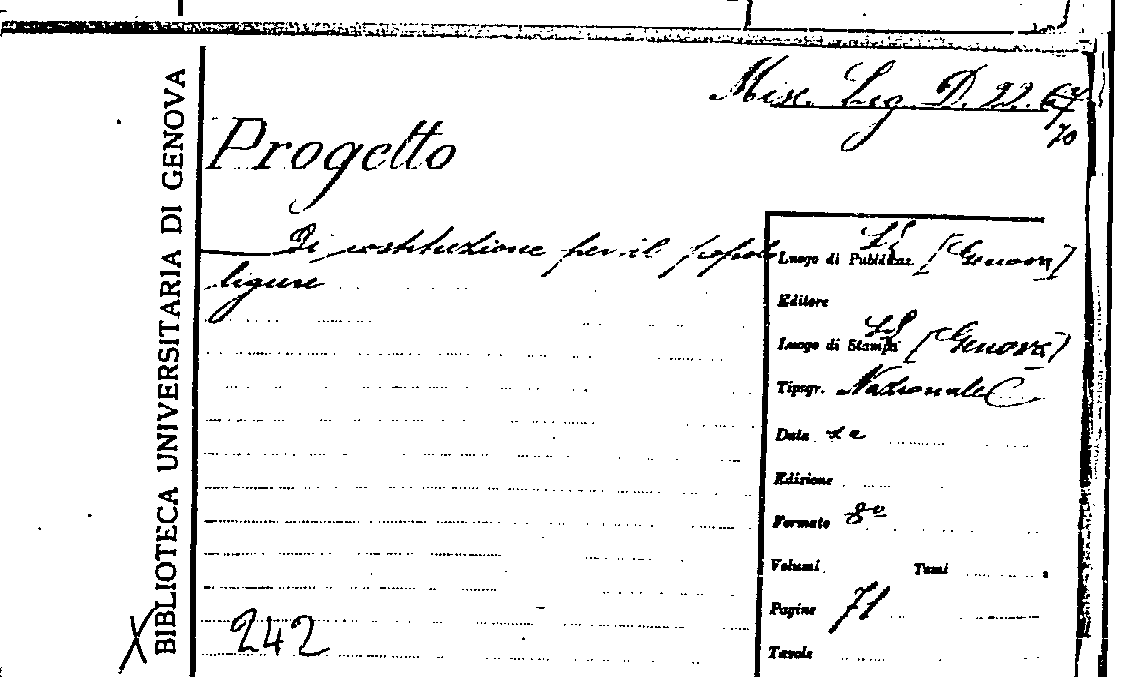 BIBLIOTECA UNIVERSITARIA DI GENOVA
Misc. Leg. D. 22. 67/70
Progetto
Di costituzione per il popolo
ligure
Luogo di Pubblicaz. [Genova]
Editore
Luogo di Stampa [Genova]
Tipogr. Nazionale
Data sa
Edizione
Formato 8º
Volumi Tomi
Pagine 71
Tavole
X 242